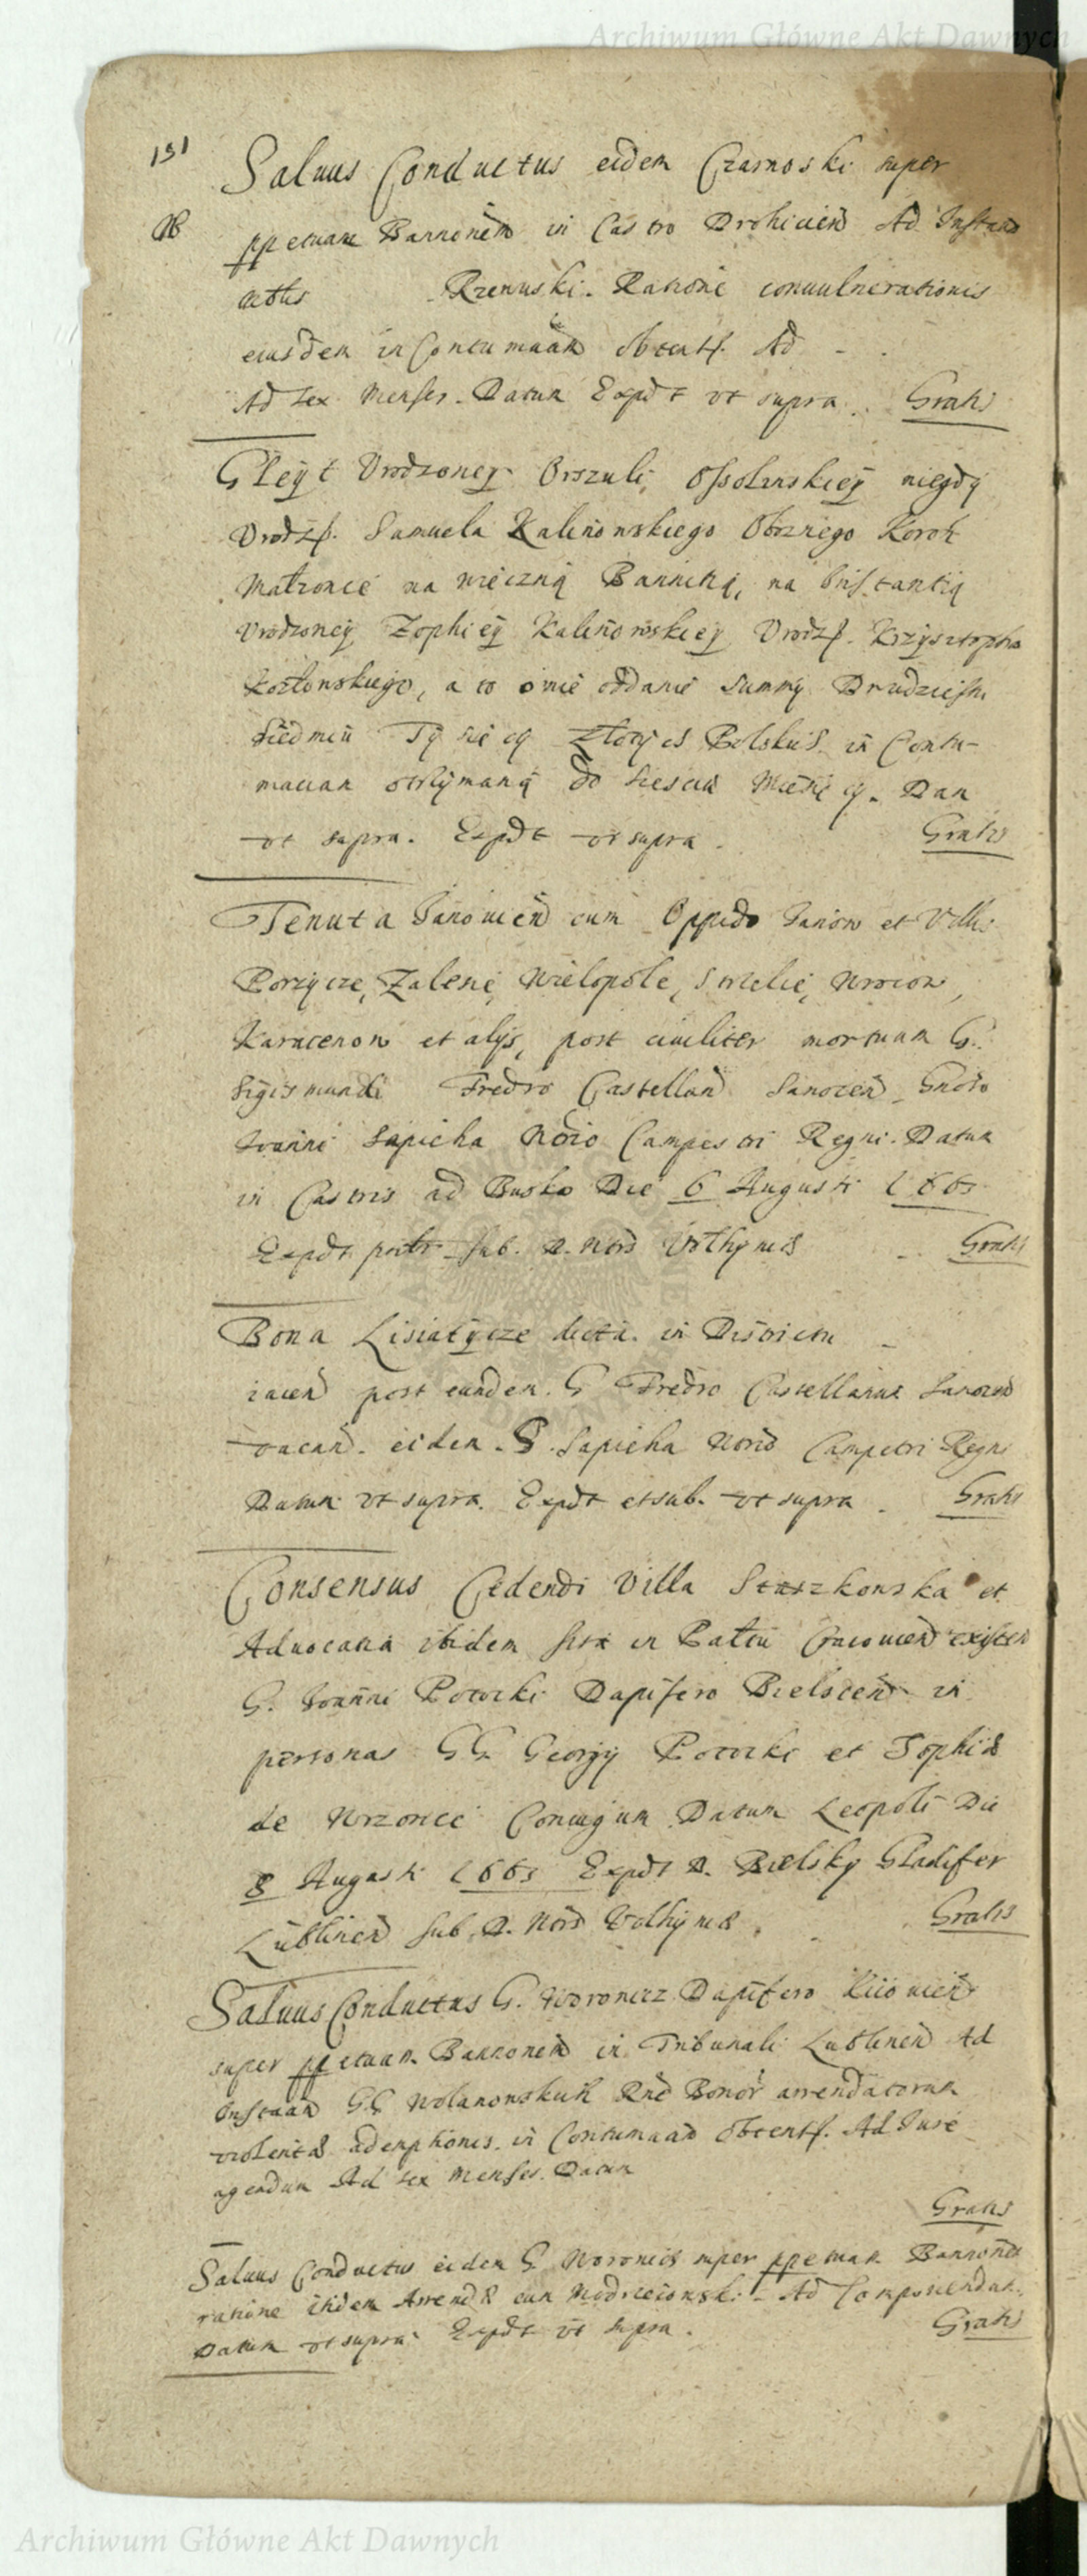 Archiwum Główne Akt Dawnych
151
Saluus Conductus eidem Czarnoski super
NB ppetuam Bannonem in Castro Drohicien Ad Instan
actus Rzewuski. Ratione conuulnerationis
eiusdem in Contumaciam obtent. Ad
Ad sex Menses. Datum Expdt vt supra. Gratis
Gleÿt Vrodzoneÿ Orszuli Ossolinskieÿ niegdÿ
Vrodz. Samuela Kalinowskiego Oboznego Koron
Małzonce na wieczną Bannitią, na Instantią
Vrodzoneÿ Zophieÿ Kalinowskieÿ Vrodz. Krzÿsztopha
Kozłowskiego, a to o nie oddanie Summÿ Dwudziestu
Siedmiu Tÿsięcÿ Złotÿch Polskich in Contu-
maciam otrzÿmaną do szesciu Miesięcÿ. Dan
vt supra. Expdt vt supra. Gratis
Tenuta Janouien cum Oppido Janow et Villis
Porzÿcze, Zalesie, Wielopole, Strzelcie, Wrocow,
Karaczenow et alÿs, post ciuiliter mortuum G.
Sigismundi Fredro Castellan Sanocen, Gnoso
Joanni Sapieha Nrio Campestri Regni. Datum
in Castris ad Busko Die 6 Augusti 1663
Expdt per sub. R. Nris Volhÿniae Gratis
Bona Lisiatÿcze dicta in Districtu
iacen post eundem G Fredro Castellanum Sanocen
vacan. eidem G. Sapieha Nrio Campestri Regni
Datum vt supra. Expdt et sub. vt supra. Gratis
Consensus Cedendi Villa Staszkowska et
Aduocatia ibidem sita in Pattu Cracouien existen
G. Joanni Potocki Dapifero Bielscen in
personas GG Georgÿ Potocki et Sophiae
de Wrzonce Coniugum Datum Leopoli Die
8 Augusti 1663 Expdt R. Bielskÿ Gladifer
Lublinen sub. R. Nris Volhÿniae. Gratis
Saluus Conductus G. Woronicz Dapifero Kiiouien
super ppetuam Bannonem in Tribunali Lublinen Ad
Instan GG Wolanowskich Rne Bonor arrendatorum
violentae ademptionis in Contumaciam obtent. Ad Jure
agendum Ad sex Menses. Datum
Gratis
Saluus Conductus eidem G Woronicz super ppetuam Bannonem
ratione itidem Arrendae cum Modrzeiowski. Ad Componendum.
Datum vt supra. Expdt vt supra. Gratis
Archiwum Główne Akt Dawnych